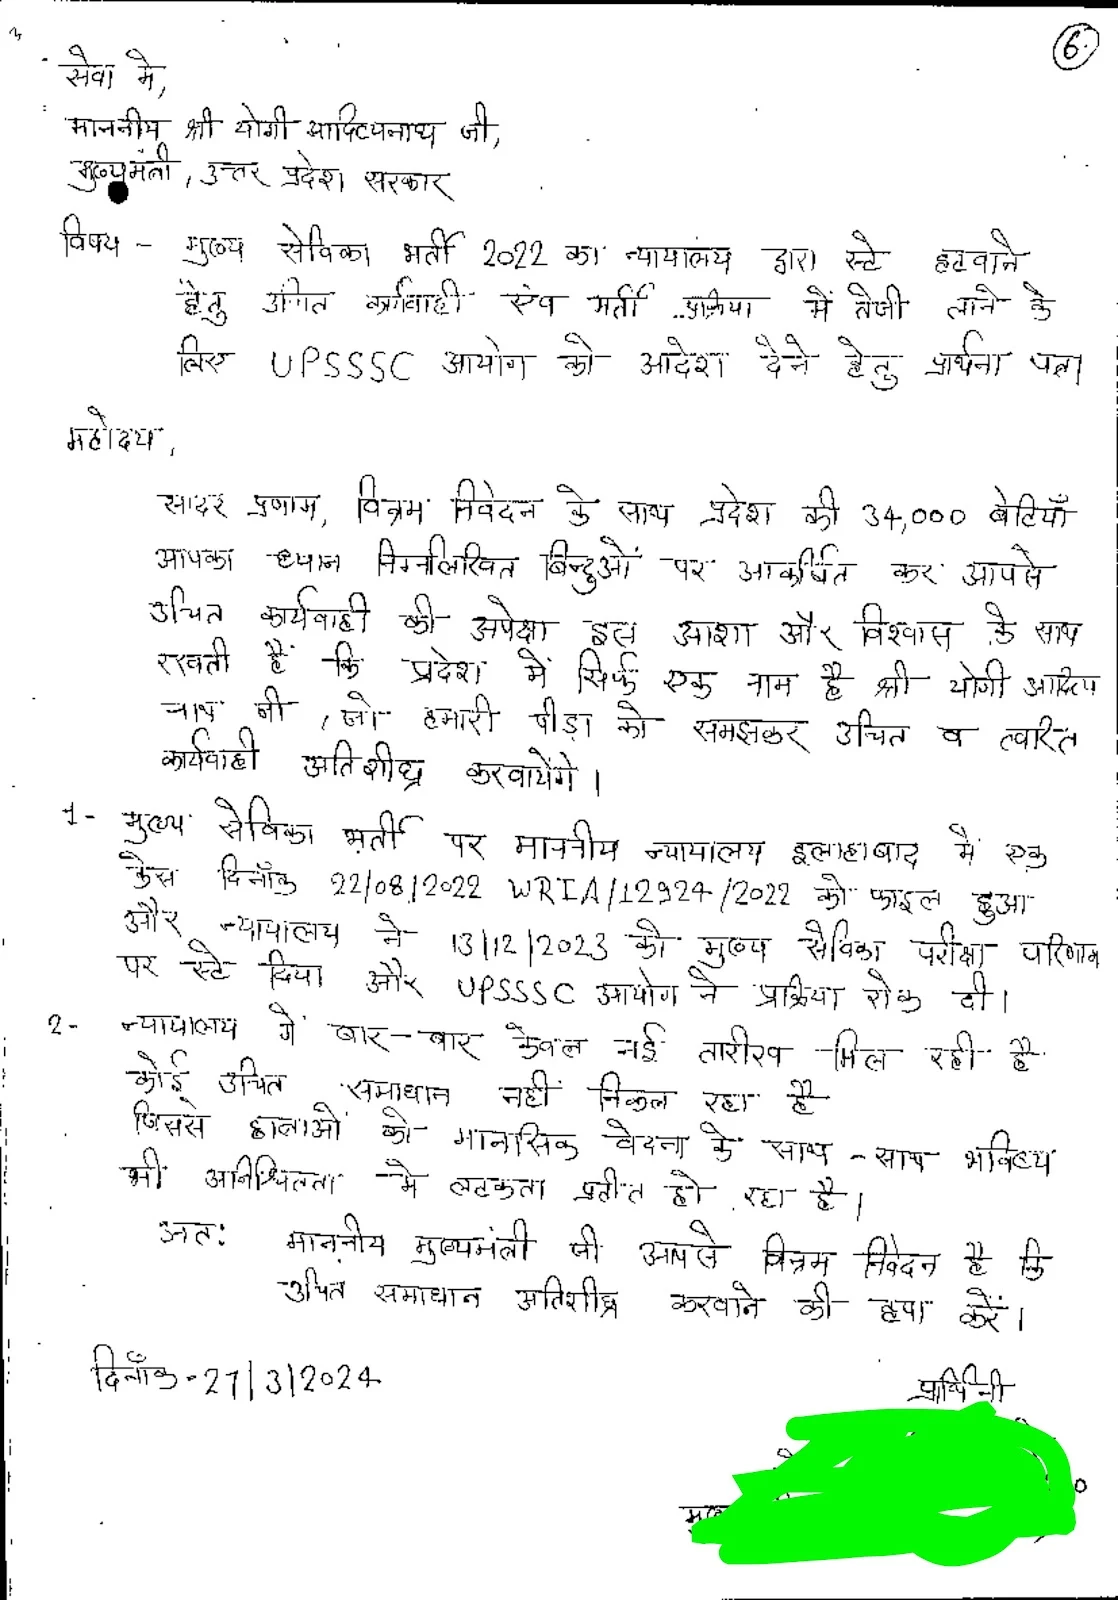 6.
सेवा मे,
माननीय श्री योगी आदित्यनाथ जी,
मुख्यमंत्री, उत्तर प्रदेश सरकार
विषय - मुख्य सेविका भर्ती 2022 का न्यायालय द्वारा स्टे हटवाने
हेतु उचित कार्यवाही एंव भर्ती प्रक्रिया में तेजी लाने के
लिए UPSSSC आयोग को आदेश देने हेतु प्रार्थना पत्र।
महोदय,
सादर प्रणाम, विनम्र निवेदन के साथ प्रदेश की 34,000 बेटियाँ
आपका ध्यान निम्नलिखित बिन्दुओं पर आकर्षित कर आपसे
उचित कार्यवाही की अपेक्षा इस आशा और विश्वास के साथ
रखती हैं कि प्रदेश में सिर्फ एक नाम है श्री योगी आदित्य
नाथ जी, जो हमारी पीड़ा को समझकर उचित व त्वरित
कार्यवाही अतिशीघ्र करवायेंगे।
1- मुख्य सेविका भर्ती पर माननीय न्यायालय इलाहाबाद में एक
केस दिनाँक 22/08/2022 WRIA/12924/2022 को फाइल हुआ
और न्यायालय ने 13/12/2023 को मुख्य सेविका परीक्षा परिणाम
पर स्टे दिया और UPSSSC आयोग ने प्रक्रिया रोक दी।
2- न्यायालय में बार-बार केवल नई तारीख मिल रही है
कोई उचित समाधान नहीं निकल रहा है
जिससे छात्राओं को मानसिक वेदना के साथ-साथ भविष्य
भी अनिश्चितता मे लटकता प्रतीत हो रहा है।
अत: माननीय मुख्यमंत्री जी आपसे विनम्र निवेदन है कि
उचित समाधान अतिशीघ्र करवाने की कृपा करें।
दिनाँक - 27/3/2024
प्रार्थिनी